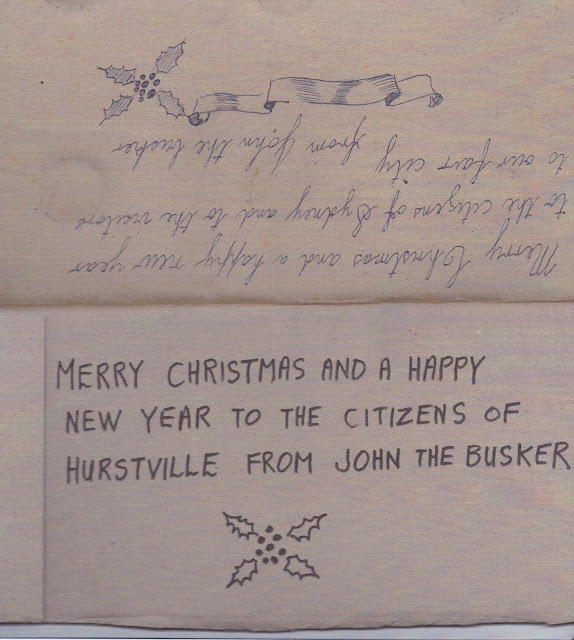 Merry Christmas and a happy new year
to the citizens of Sydney and to the visitors
to our fair city from John the busker
MERRY CHRISTMAS AND A HAPPY
NEW YEAR TO THE CITIZENS OF
HURSTVILLE FROM JOHN THE BUSKER